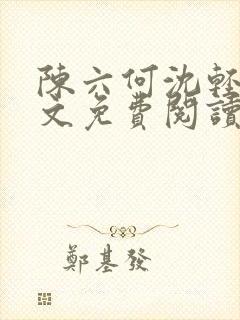 陳六何沈輕
文免費閱讀
鄭基發